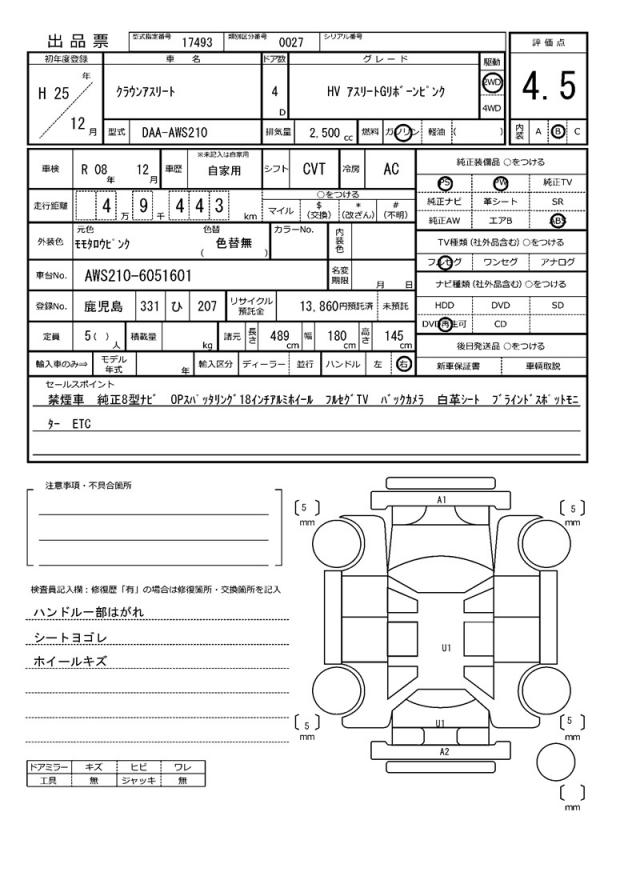 出品票 型式指定番号 17493 類別区分番号 0027 シリアル番号
評価点
4.5
初年度登録 車名 ドア数 グレード 駆動
H 25 年 12 月
クラウンアスリート
4 D
HV アスリートGリボーンピンク
2WD
4WD
型式 DAA-AWS210 排気量 2,500 cc 燃料 ガソリン 軽油 ( )
内装 A B C
車検 R 08 年 12 月 車歴 ※未記入は自家用 自家用 シフト CVT 冷房 AC
純正装備品 ○をつける
PS PW 純正TV
純正ナビ 革シート SR
純正AW エアB ABS
走行距離 4 万 9 千 4 4 3 km
○をつける
マイル $ (交換) * (改ざん) # (不明)
外装色 元色 モモタロウピンク 色替 ( 色替無 ) カラーNo. 内装色
TV種類 (社外品含む) ○をつける
フルセグ ワンセグ アナログ
車台No. AWS210-6051601 名変期限 月 日
ナビ種類 (社外品含む) ○をつける
HDD DVD SD
DVD再生可 CD
登録No. 鹿児島 331 ひ 207 リサイクル預託金 13,860円預託済 未預託
定員 5( )人 積載量 kg 諸元 長さ 489 cm 幅 180 cm 高さ 145 cm
後日発送品 ○をつける
新車保証書 車輌取説
輸入車のみ⇒ モデル年式 年 輸入区分 ディーラー 並行 ハンドル 左 右
セールスポイント
禁煙車 純正8型ナビ OPスパッタリング18インチアルミホイール フルセグTV バックカメラ 白革シート ブラインドスポットモニ
ター ETC
注意事項・不具合箇所
検査員記入欄：修復歴「有」の場合は修復箇所・交換箇所を記入
ハンドル一部はがれ
シートヨゴレ
ホイールキズ
ドアミラー キズ ヒビ ワレ
工具 無 ジャッキ 無
A1
5 mm
5 mm
U1
U1
A2
5 mm
5 mm
mm